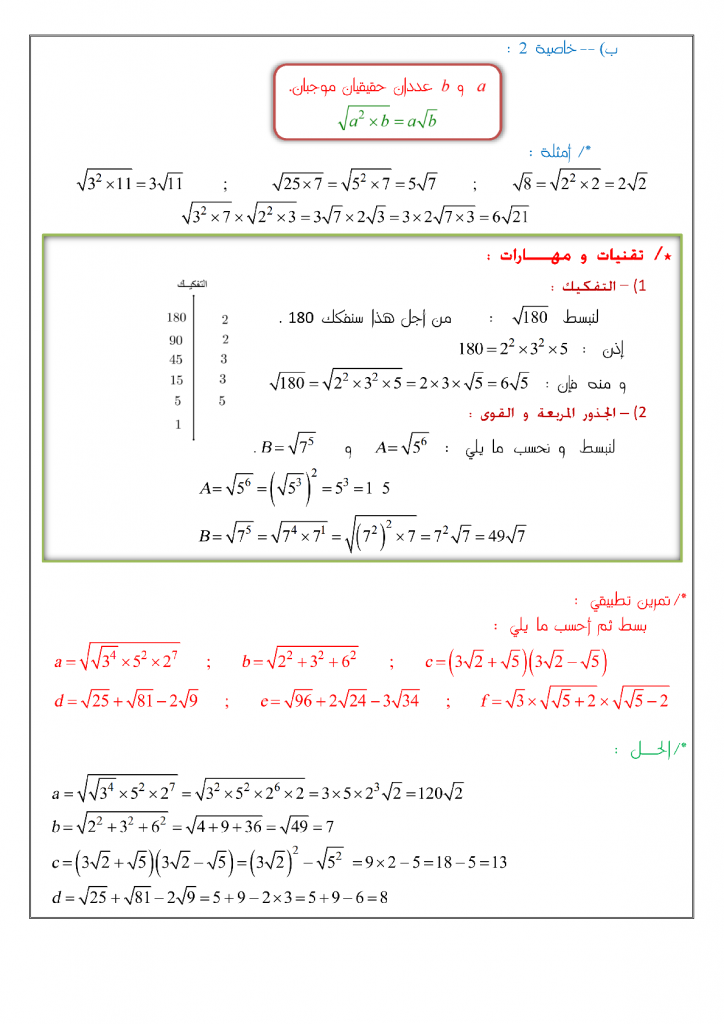 ب) -- خاصية 2 :
a و b عددان حقيقيان موجبان.
√(a² × b) = a√b
*/ أمثلة :
√(3² × 11) = 3√11 ; √(25 × 7) = √(5² × 7) = 5√7 ; √8 = √(2² × 2) = 2√2
√(3² × 7) × √(2² × 3) = 3√7 × 2√3 = 3 × 2√(7 × 3) = 6√21
*/ تقنيات و مهــــارات :
1) – التفكيك :
التفكيك
180 2
90 2
45 3
15 3
5 5
1
لنبسط √180 : من إجل هذا سنفكك 180 .
إذن : 180 = 2² × 3² × 5
و منه فإن : √180 = √(2² × 3² × 5) = 2 × 3 × √5 = 6√5
2) – الجذور المربعة و القوى :
لنبسط و نحسب ما يلي : A = √5⁶ و B = √7⁵ .
A = √5⁶ = (√5³)² = 5³ = 1 5
B = √7⁵ = √(7⁴ × 7¹) = √((7²)² × 7) = 7²√7 = 49√7
*/ تمرين تطبيقي :
بسط ثم إحسب ما يلي :
a = √(√3⁴ × 5² × 2⁷) ; b = √(2² + 3² + 6²) ; c = (3√2 + √5)(3√2 − √5)
d = √25 + √81 − 2√9 ; e = √96 + 2√24 − 3√34 ; f = √3 × √(√5 + 2) × √(√5 − 2)
*/ إلحــل :
a = √(√3⁴ × 5² × 2⁷) = √(3² × 5² × 2⁶ × 2) = 3 × 5 × 2³√2 = 120√2
b = √(2² + 3² + 6²) = √(4 + 9 + 36) = √49 = 7
c = (3√2 + √5)(3√2 − √5) = (3√2)² − √5² = 9 × 2 − 5 = 18 − 5 = 13
d = √25 + √81 − 2√9 = 5 + 9 − 2 × 3 = 5 + 9 − 6 = 8